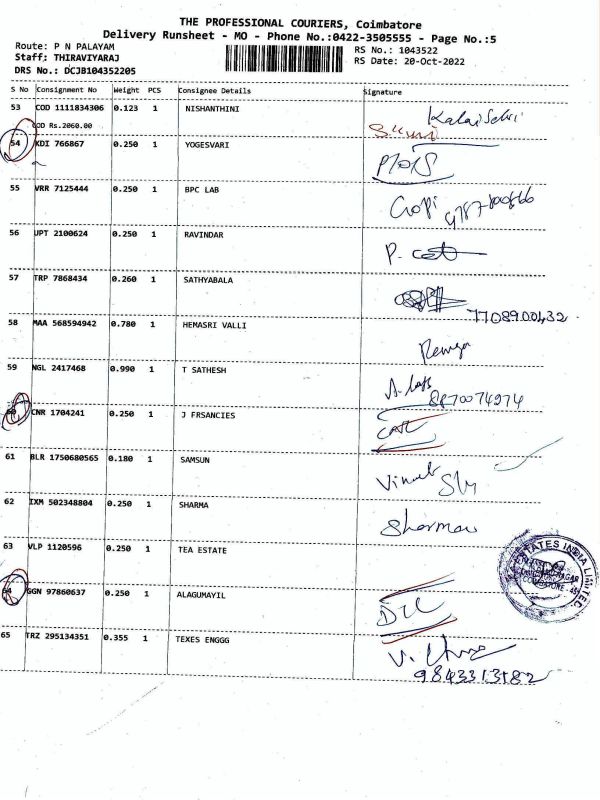 THE PROFESSIONAL COURIERS, Coimbatore
Delivery Runsheet - MO - Phone No.:0422-3505555 - Page No.:5
Route: P N PALAYAM
RS No.: 1043522
Staff: THIRAVIYARAJ
RS Date: 20-Oct-2022
DRS No.: DCJB104352205
S No Consignment No Weight PCS Consignee Details Signature
53 COD 1111834306 0.123 1 NISHANTHINI Kalaiselvi
COD Rs.2060.00
54 KDI 766867 0.250 1 YOGESVARI
55 VRR 7125444 0.250 1 BPC LAB Gopi
56 UPT 2100624 0.250 1 RAVINDAR P.
57 TRP 7868434 0.260 1 SATHYABALA
7708900432
58 MAA 568594942 0.780 1 HEMASRI VALLI
59 NGL 2417468 0.990 1 T SATHESH
8870074974
60 CNR 1704241 0.250 1 J FRSANCIES
61 BLR 1750680565 0.180 1 SAMSUN
62 IXM 502348804 0.250 1 SHARMA Sharman
63 VLP 1120596 0.250 1 TEA ESTATE
ESTATES INDIA LIMITED
COIMBATORE - 45
64 GGN 97860637 0.250 1 ALAGUMAYIL
65 TRZ 295134351 0.355 1 TEXES ENGGG V.
9843313182